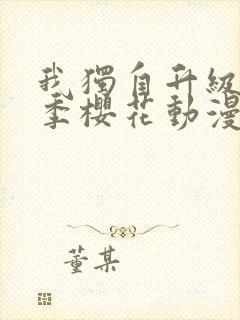 我獨自升級
季櫻花動漫
董某